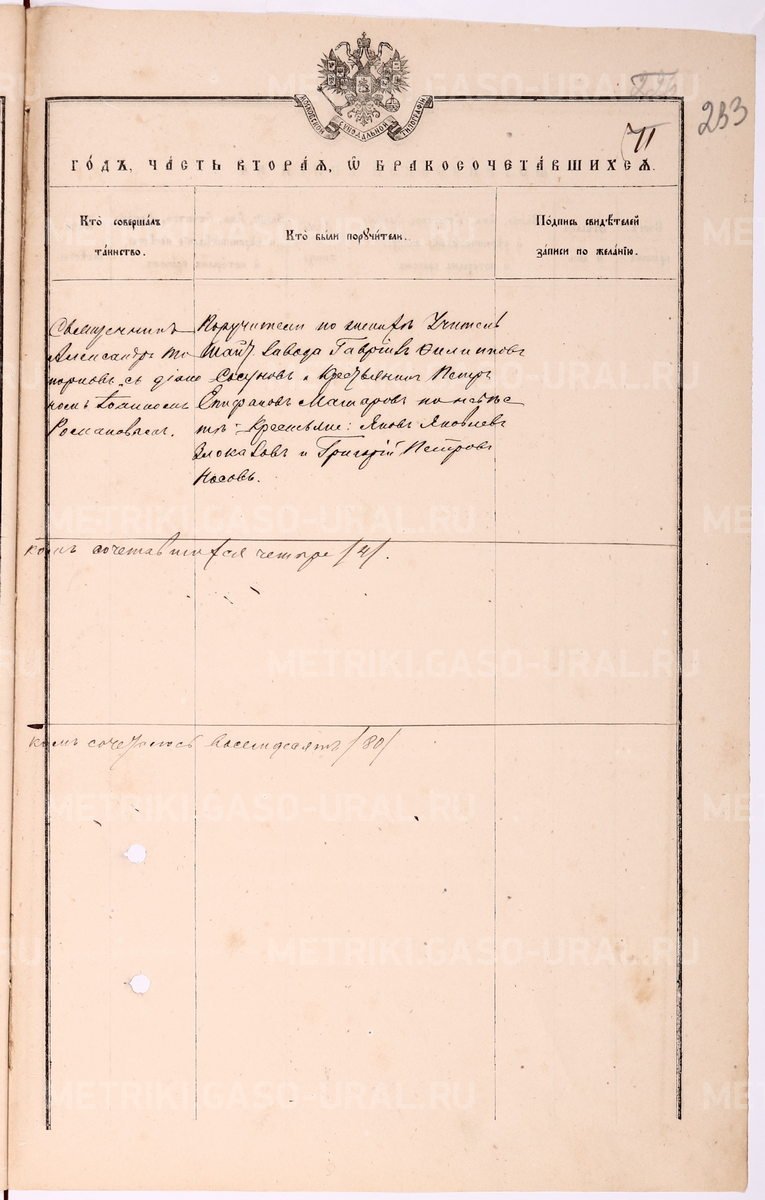 МОСКОВСКОЙ СѴНОДАЛЬНОЙ ТИПОГРАФІИ
233
71
ГО́ДЪ, ЧА́СТЬ ВТОРА́Я, Ѿ БРАКОСОЧЕТА́ВШИХСЯ.
Кто̀ соверша́лъ
та́инство.
Кто̀ бы́ли поручи́тели.
По́дпись свидѣ́телей
за́писи по жела́нію.
Священникъ
Александръ То
порковъ съ діако
номъ Іоанномъ
Романовымъ.
Поручители по женихѣ Учитель
Шайт. завода Гавріилъ Филипповъ
Сосуновъ и Крестьянинъ Петръ
Епифановъ Макаровъ по невѣс
тѣ: Крестьяне: Яковъ Яковлевъ
Злоказовъ и Григорій Петровъ
Носовъ.
сочетавшихся четыре /4/.
восемьдесятъ /80/
METRIKI.GASO-URAL.RU